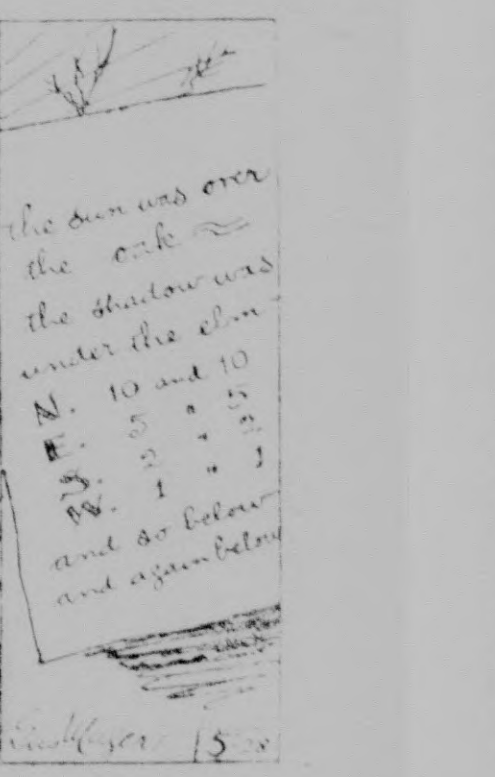 the sun was over
the oak
the shadow was
under the elm -
N. 10 and 10
E. 5 " 5
S. 2 " 2
W. 1 " 1
and so below
and again below
15